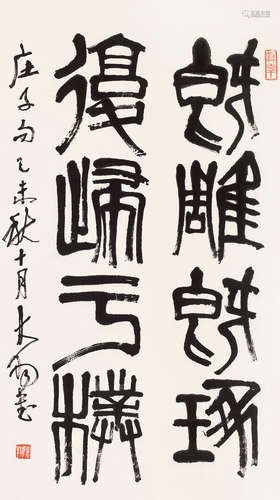 既雕既琢
復歸于樸
庄子句乙未秋十月大翔書